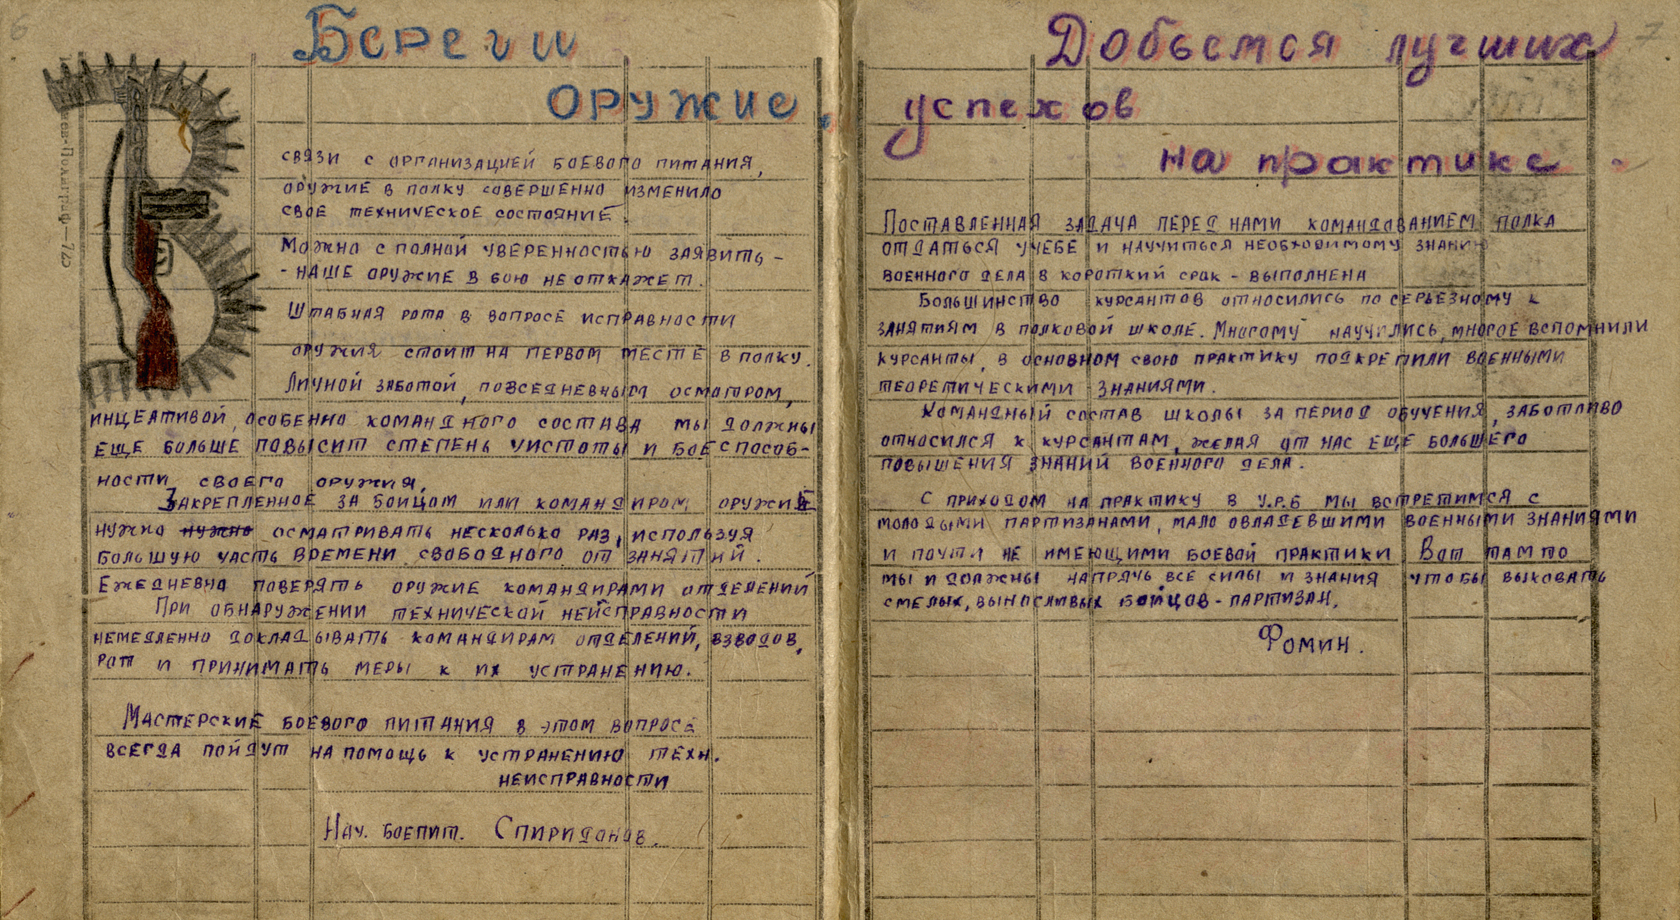 6
Береги
оружие.
связи с организацией боевого питания,
оружие в полку совершенно изменило
свое техническое состояние.
Можно с полной уверенностью заявить -
- наше оружие в бою не откажет.
Штабная рота в вопросе исправности
оружия стоит на первом месте в полку.
Личной заботой, повседневным осмотром,
инцеативой, особенно командного состава мы должны
еще больше повысит степень чистоты и боеспособ-
ности своего оружия.
Закрепленное за бойцом или командиром оружие
нужно нужно осматривать несколько раз, используя
большую часть времени свободного от занятий.
Ежедневно поверять оружие командирами отделений
При обнаружении технической неисправности
немедленно докладывать командирам отделений, взводов,
рот и принимать меры к их устранению.
Мастерские боевого питания в этом вопросе
всегда пойдут на помощь к устранению техн.
неисправности
Нач. боепит. Спиридонов.
7
Добьемся лучших
успехов
на практике.
Поставленная задача перед нами командованием полка
отдаться учебе и научиться необходимому знанию
военного дела в короткий срок - выполнена
Большинство курсантов относились по серьезному к
занятиям в полковой школе. Многому научились, многое вспомнили
курсанты, в основном свою практику подкрепили военными
теоретическими знаниями.
Командный состав школы за период обучения, заботливо
относился к курсантам, желая от нас еще большего
повышения знаний военного дела.
С приходом на практику в У.Р.Б мы встретимся с
молодыми партизанами, мало овладевшими военными знаниями
и почти не имеющими боевой практики Вот там то
мы и должны напрячь все силы и знания чтобы выковать
смелых, выносливых бойцов - партизан.
Фомин.